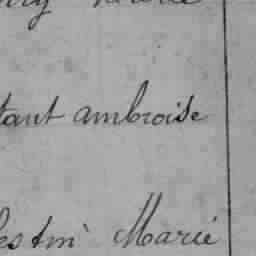 tant ambroise
les tin Marie